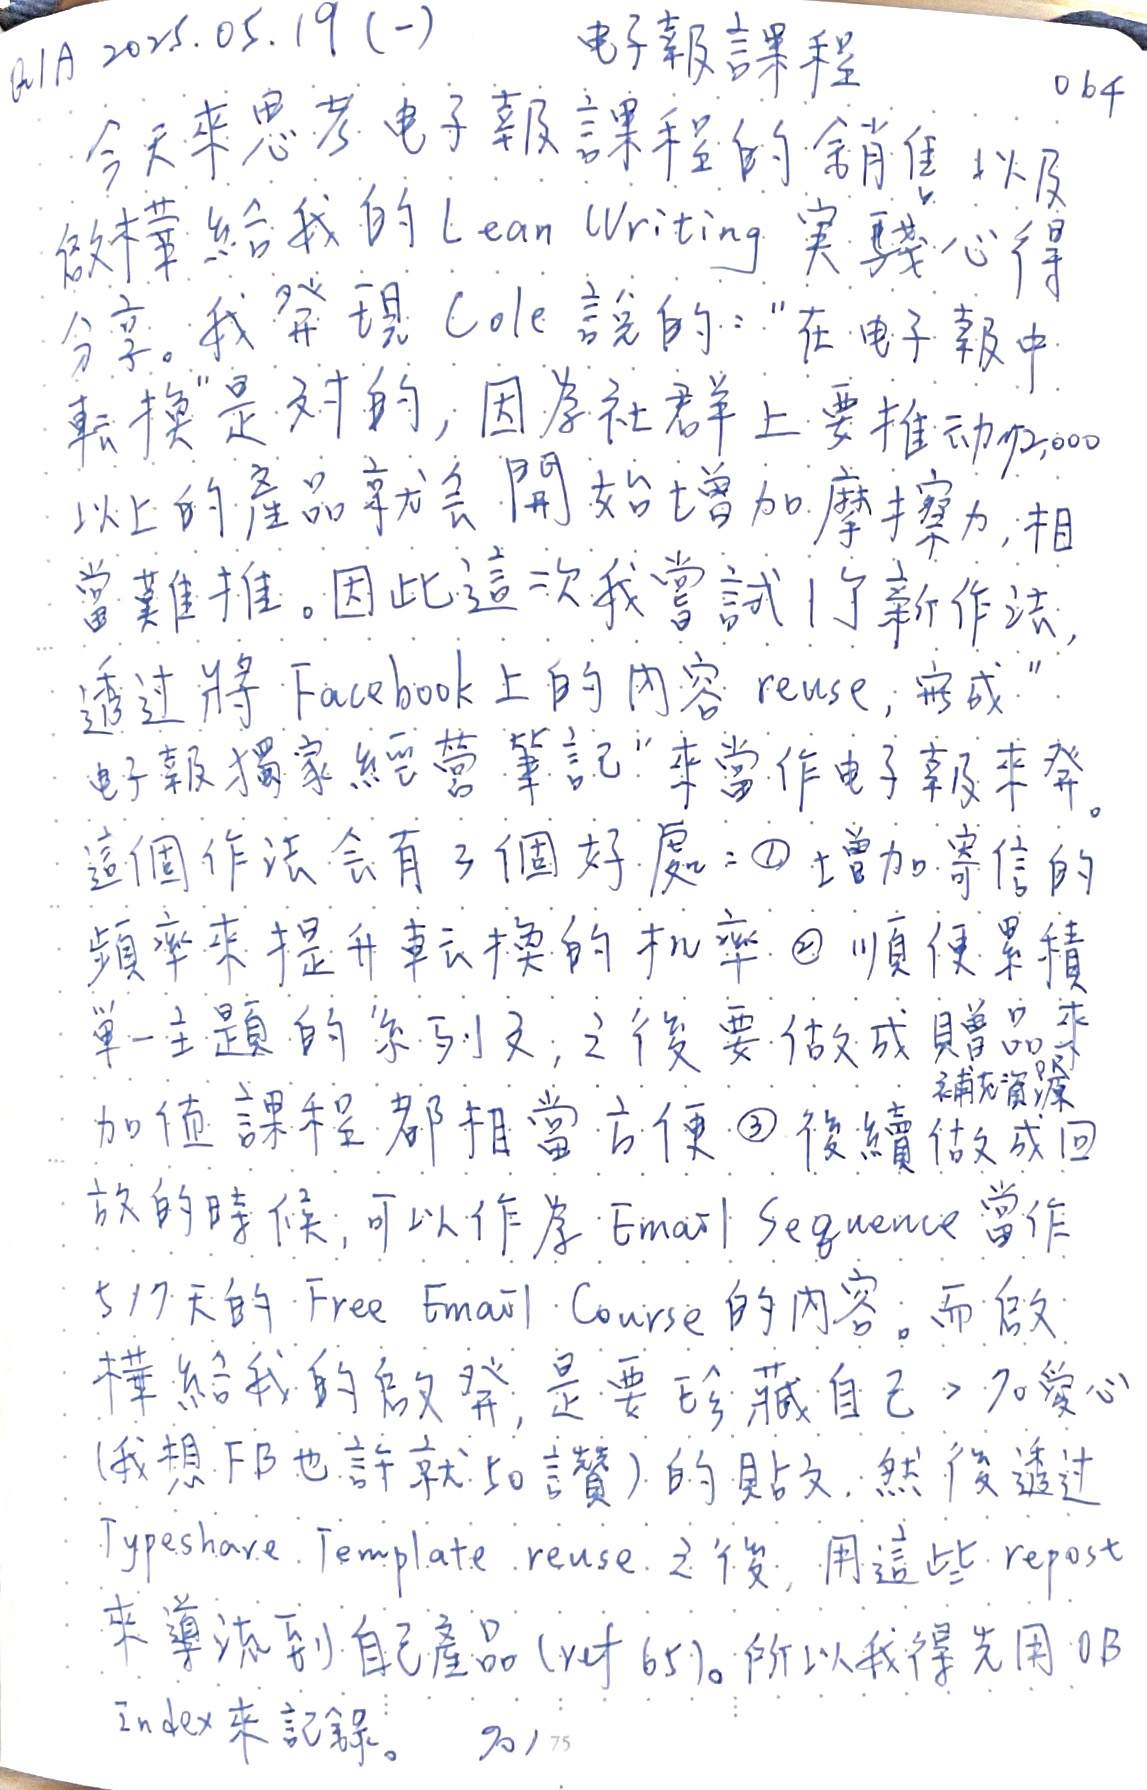 B1A 2025.05.19 (一) 电子報課程 064
今天來思考电子報課程的銷售以及
啟樺給我的Lean Writing 実踐心得
分享。我発現 Cole 說的:"在电子報中
転換"是対的,因為社群上要推动$2,000
以上的產品就会開始增加摩擦力,相
當難推。因此這次我嘗試1了新作法,
透过將 Facebook上的內容 reuse,完成"
电子報獨家經營筆記"來當作电子報來発。
這個作法会有3個好處:① 增加寄信的
頻率來提升転換的机率 ② 順便累積
單一主題的系列文,之後要做成贈品來
補充資源
加值課程都相當方便 ③後續做成回
放的時候,可以作為 Email Sequence 當作
5/7天的 Free Email Course的內容。而啟
樺給我的啟発,是要珍藏自己>70愛心
(我想FB也許就50讚)的貼文,然後透过
Typeshare Template reuse 之後,用這些 repost
來導流到自己產品(ref 65)。所以我得先用OB
Index來記錄。
75